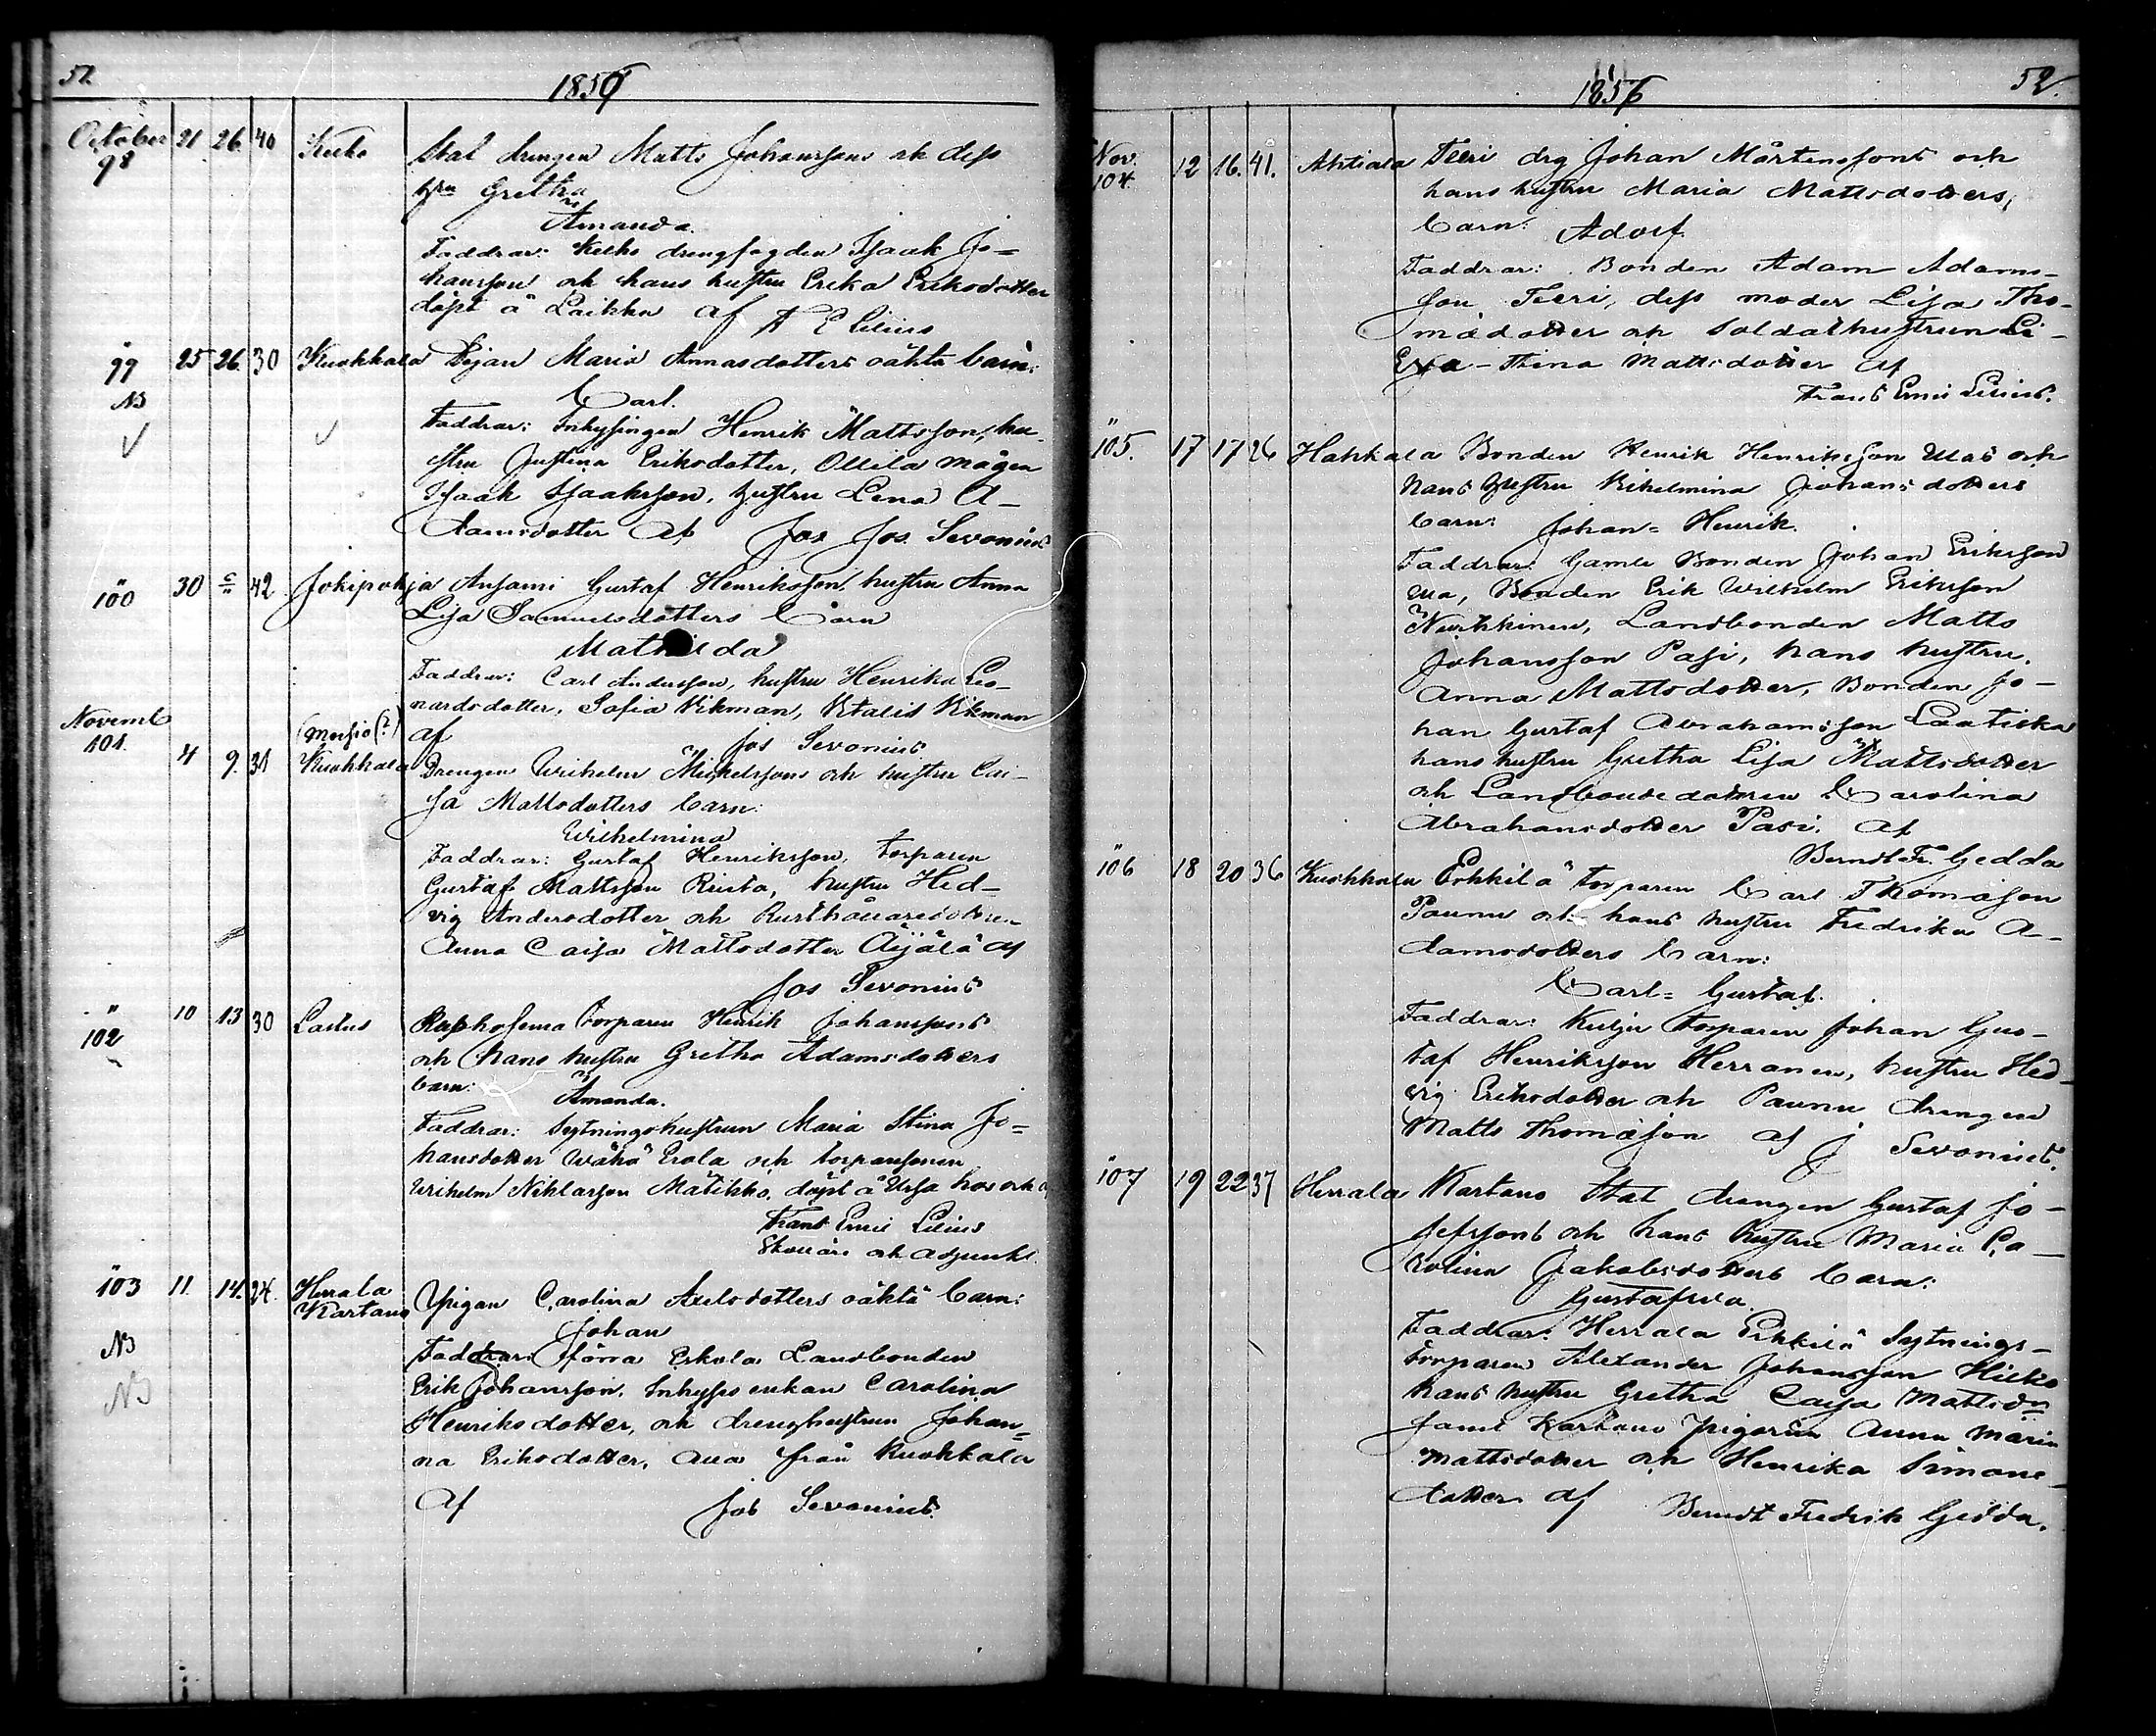 51.
1856
October 98 21 26. 40 Keeko Stat drengen Matts Johanssons och dess
h:u Gretha
Amanda.
Faddrar: Keeko drengfogden Isaak Jo=
hansson och hans hustru Erika Eriksdotter
döpt å Laikka af F E Lilius
" 99 25 26. 30 Kuokkala Pigan Maria Annasdotters oäkta barn:
NB Carl.
Faddrar: Inhysingen Henrik Mattsson, hu-
stru Justina Eriksdotter, Ollila mågen
Isaak Isaaksson, hustru Lena A-
damsdotter af Jos Jos. Sevonius
" 100 30 " 42 Jokipohja Ansami Gustaf Henriksson, hustru Anna
Lisa Samuelsdotters barn
Mathilda
Faddrar: Carl Andersson, hustru Henrika Leo-
nardsdotter, Sofia Vikman, Vitalis Vikman
af Jos Sevonius
Novemb 101. 4 9. 31 (Moisio (?) Kuokkala Drengen Wilhelm Mickelssons och hustru Cai-
sa Mattsdotters barn:
Wilhelmina
Faddrar: Gustaf Henriksson, torparen
Gustaf Mattsson Rusta, hustru Hed-
vig Andersdotter och Rusthållaredottren
Anna Caisa Mattsdotter Äijälä af
Jos Sevonius
" 102 10 13 30 Lastus torparen Henrik Johanssons
och hans hustru Gretha Adamsdotters
barn: Amanda.
Faddrar: Sytningshustrun Maria Stina Jo=
hansdotter Wähä Erola och torparesonen
Wilhelm Niklasson Matikko, döpt å Ursa hos och af
Frans Emil Lilius
och adjunkt.
" 103 11 14. 24. Herrala Kartano Pigan Carolina Axelsdotters oäkta barn:
NB Johan
Faddrar: förra Eskola Landbonden
Erik Johansson, Inhyses enkan Carolina
NB Henriksdotter, och drenghustrun Johan=
na Eriksdotter, alla från Kuokkala
af Jos Sevonius.
52.
1856
Nov. 104. 12 16. 41. Ahtiala Teeri drg Johan Mårtenssons och
hans hustru Maria Mattsdotters,
barn: Adolf.
Faddrar: Bonden Adam Adams-
son Teeri, dess moder Lisa Tho-
mædotter och Soldathustrun
Eva-Stina Mattsdotter af
Frans Emil Lilius.
" 105. 17 17 26 Hakkala Bonden Henrik Henriksson Ulas och
hans hustru Vilhelmina Johansdotters
barn: Johan=Henrik.
Faddrar: Gamle Bonden Johan Eriksson
Ulla, Bonden Erik Wilhelm Eriksson
Nurkkinen, Landbonden Matts
Johansson Pasi, hans hustru.
Anna Mattsdotter, Bonden Jo-
han Gustaf Abrahamsson Laatikka
hans hustru Gretha Lisa Mattsdotter
och Landbondedottren Carolina
Abrahamsdotter Pasi. af
Berndt Fr. Gedda
" 106 18 20 36 Kuokkala Erkkilä torparen Carl Thomasson
Paunu och hans hustru Fredrika A-
damsdotters barn:
Carl=Gustaf.
Faddrar: Kulju torparen Johan Gus-
taf Henriksson Herranen, hustru Hed-
vig Eriksdotter och Paunu drengen
Matts Thomasson af J Sevonius.
" 107 19 22 37 Herrala Kartano Stat drengen Gustaf Jo-
sefssons och hans hustru Maria Ca-
rolina Jakobsdotters barn:
Gustafwa.
Faddrar: Herrala Erkkilä Sytnings-
torparen Alexander Johansson Hicko
hans hustru Gretha Caisa Mattsdr
samt Kartano pigorna Anna Maria
Mattsdotter och Henrika Simons-
dotter af Berndt Fredrik Gedda.